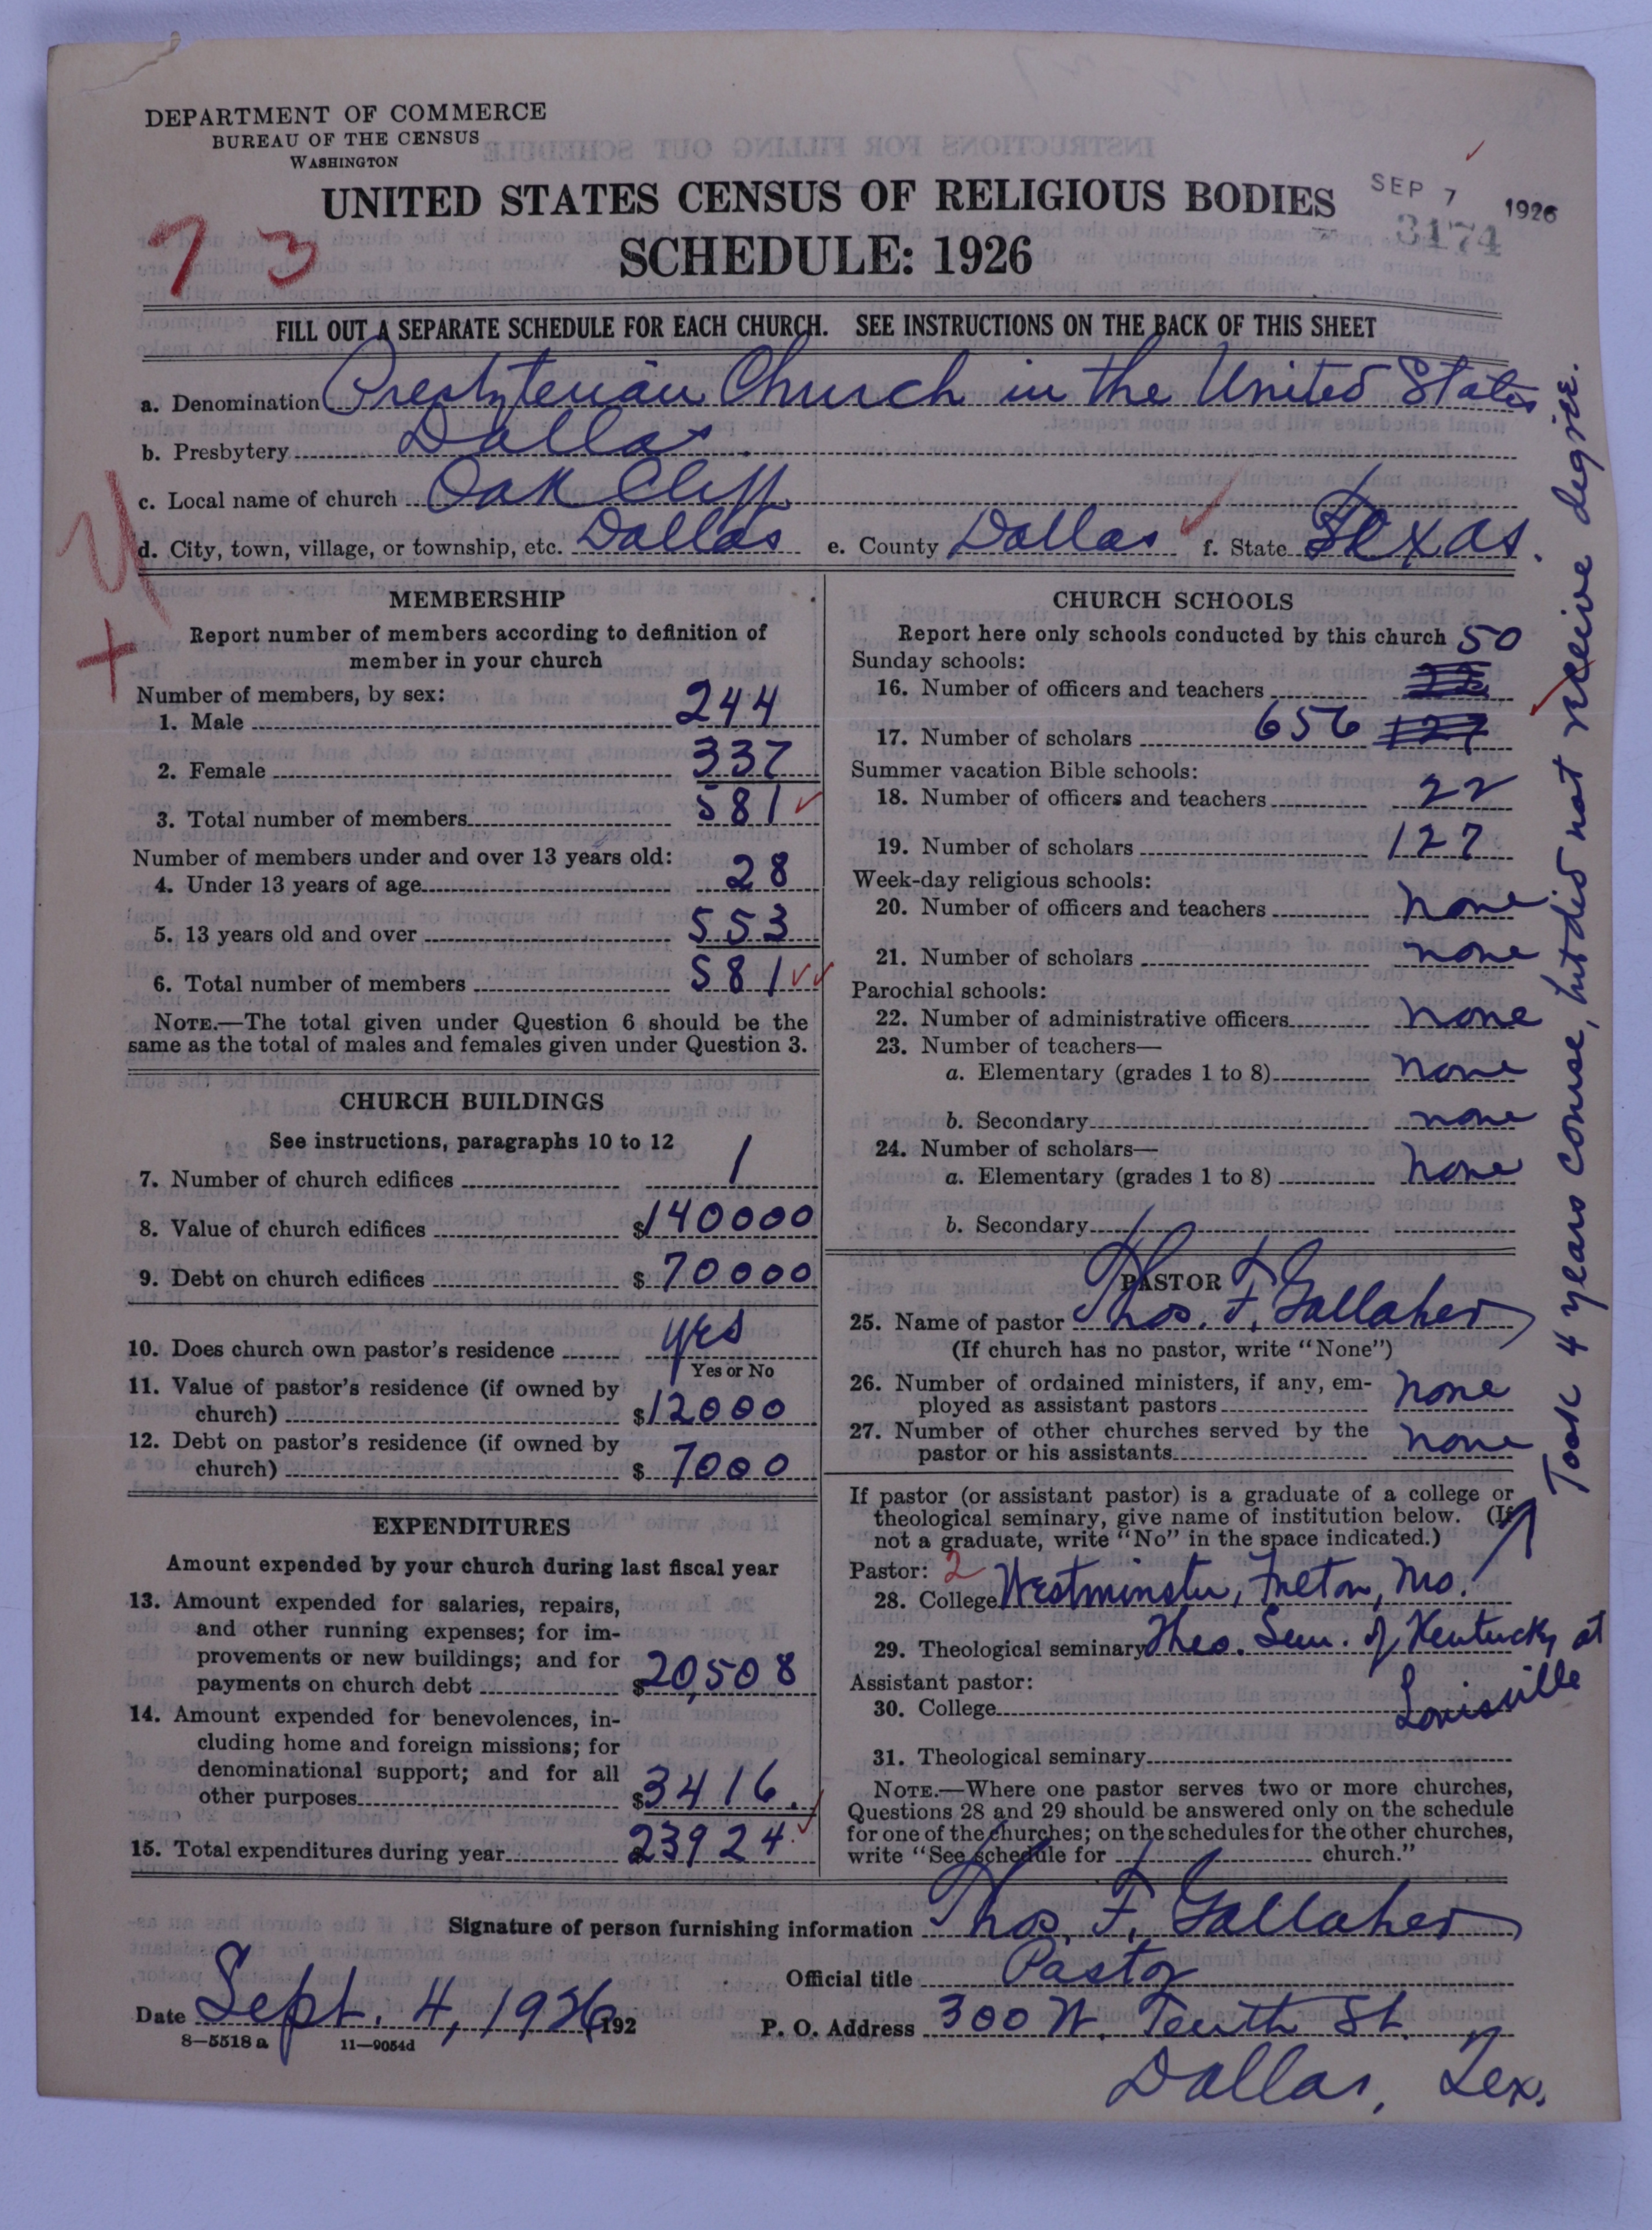 DEPARTMENT OF COMMERCE
BUREAU OF THE CENSUS
WASHINGTON
UNITED STATES CENSUS OF RELIGIOUS BODIES
SCHEDULE: 1926
SEP 7 1926
3174
73
FILL OUT A SEPARATE SCHEDULE FOR EACH CHURCH. SEE INSTRUCTIONS ON THE BACK OF THIS SHEET
a. Denomination Presbyterian Church in the United States
b. Presbytery Dallas
c. Local name of church Oak Cliff
d. City, town, village, or township, etc. Dallas e. County Dallas f. State Texas.
MEMBERSHIP
Report number of members according to definition of
member in your church
Number of members, by sex:
1. Male 244
2. Female 337
3. Total number of members 581
Number of members under and over 13 years old:
4. Under 13 years of age 28
5. 13 years old and over 553
6. Total number of members 581
NOTE.—The total given under Question 6 should be the
same as the total of males and females given under Question 3.
CHURCH BUILDINGS
See instructions, paragraphs 10 to 12
7. Number of church edifices 1
8. Value of church edifices $140000
9. Debt on church edifices $70000
10. Does church own pastor's residence yes
Yes or No
11. Value of pastor's residence (if owned by
church) $12000
12. Debt on pastor's residence (if owned by
church) $7000
EXPENDITURES
Amount expended by your church during last fiscal year
13. Amount expended for salaries, repairs,
and other running expenses; for im-
provements or new buildings; and for
payments on church debt $20,508
14. Amount expended for benevolences, in-
cluding home and foreign missions; for
denominational support; and for all
other purposes $3416.
15. Total expenditures during year 23924
CHURCH SCHOOLS
Report here only schools conducted by this church
Sunday schools:
16. Number of officers and teachers 50
17. Number of scholars 656 127
Summer vacation Bible schools:
18. Number of officers and teachers 22
19. Number of scholars 127
Week-day religious schools:
20. Number of officers and teachers none
21. Number of scholars none
Parochial schools:
22. Number of administrative officers none
23. Number of teachers—
a. Elementary (grades 1 to 8) none
b. Secondary none
24. Number of scholars—
a. Elementary (grades 1 to 8) none
b. Secondary
PASTOR
25. Name of pastor Thos. F. Gallaher
(If church has no pastor, write "None")
26. Number of ordained ministers, if any, em-
ployed as assistant pastors none
27. Number of other churches served by the
pastor or his assistants none
If pastor (or assistant pastor) is a graduate of a college or
theological seminary, give name of institution below. (If
not a graduate, write "No" in the space indicated.)
Pastor: 2
28. College Westminster, Fulton, Mo.
29. Theological seminary Theo. Sem. of Kentucky at
Louisville
Assistant pastor:
30. College
31. Theological seminary
NOTE.—Where one pastor serves two or more churches,
Questions 28 and 29 should be answered only on the schedule
for one of the churches; on the schedules for the other churches,
write "See schedule for church."
Took 4 years course, but did not receive degree.
Signature of person furnishing information Thos. F. Gallaher
Official title Pastor
Date Sept. 4, 1926 192
P. O. Address 300 W. Tenth St.
Dallas, Tex.
8—5518 a 11—9054d